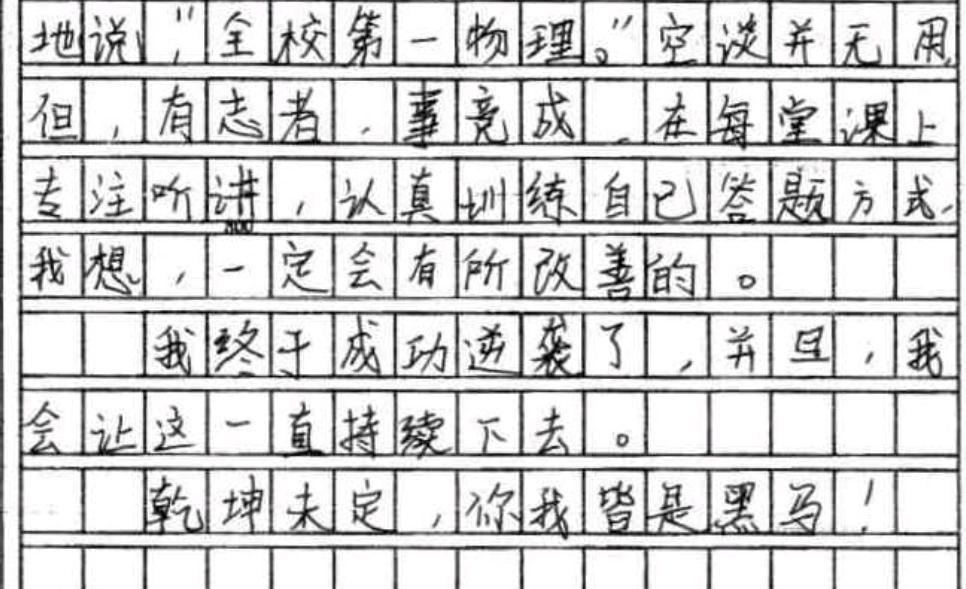 地说，“全校第一物理。”空谈并无用，
但，有志者，事竟成，在每堂课上
专注听讲，认真训练自己答题方式，
800
我想，一定会有所改善的。
我终于成功逆袭了，并且，我
会让这一直持续下去。
乾坤未定，你我皆是黑马！